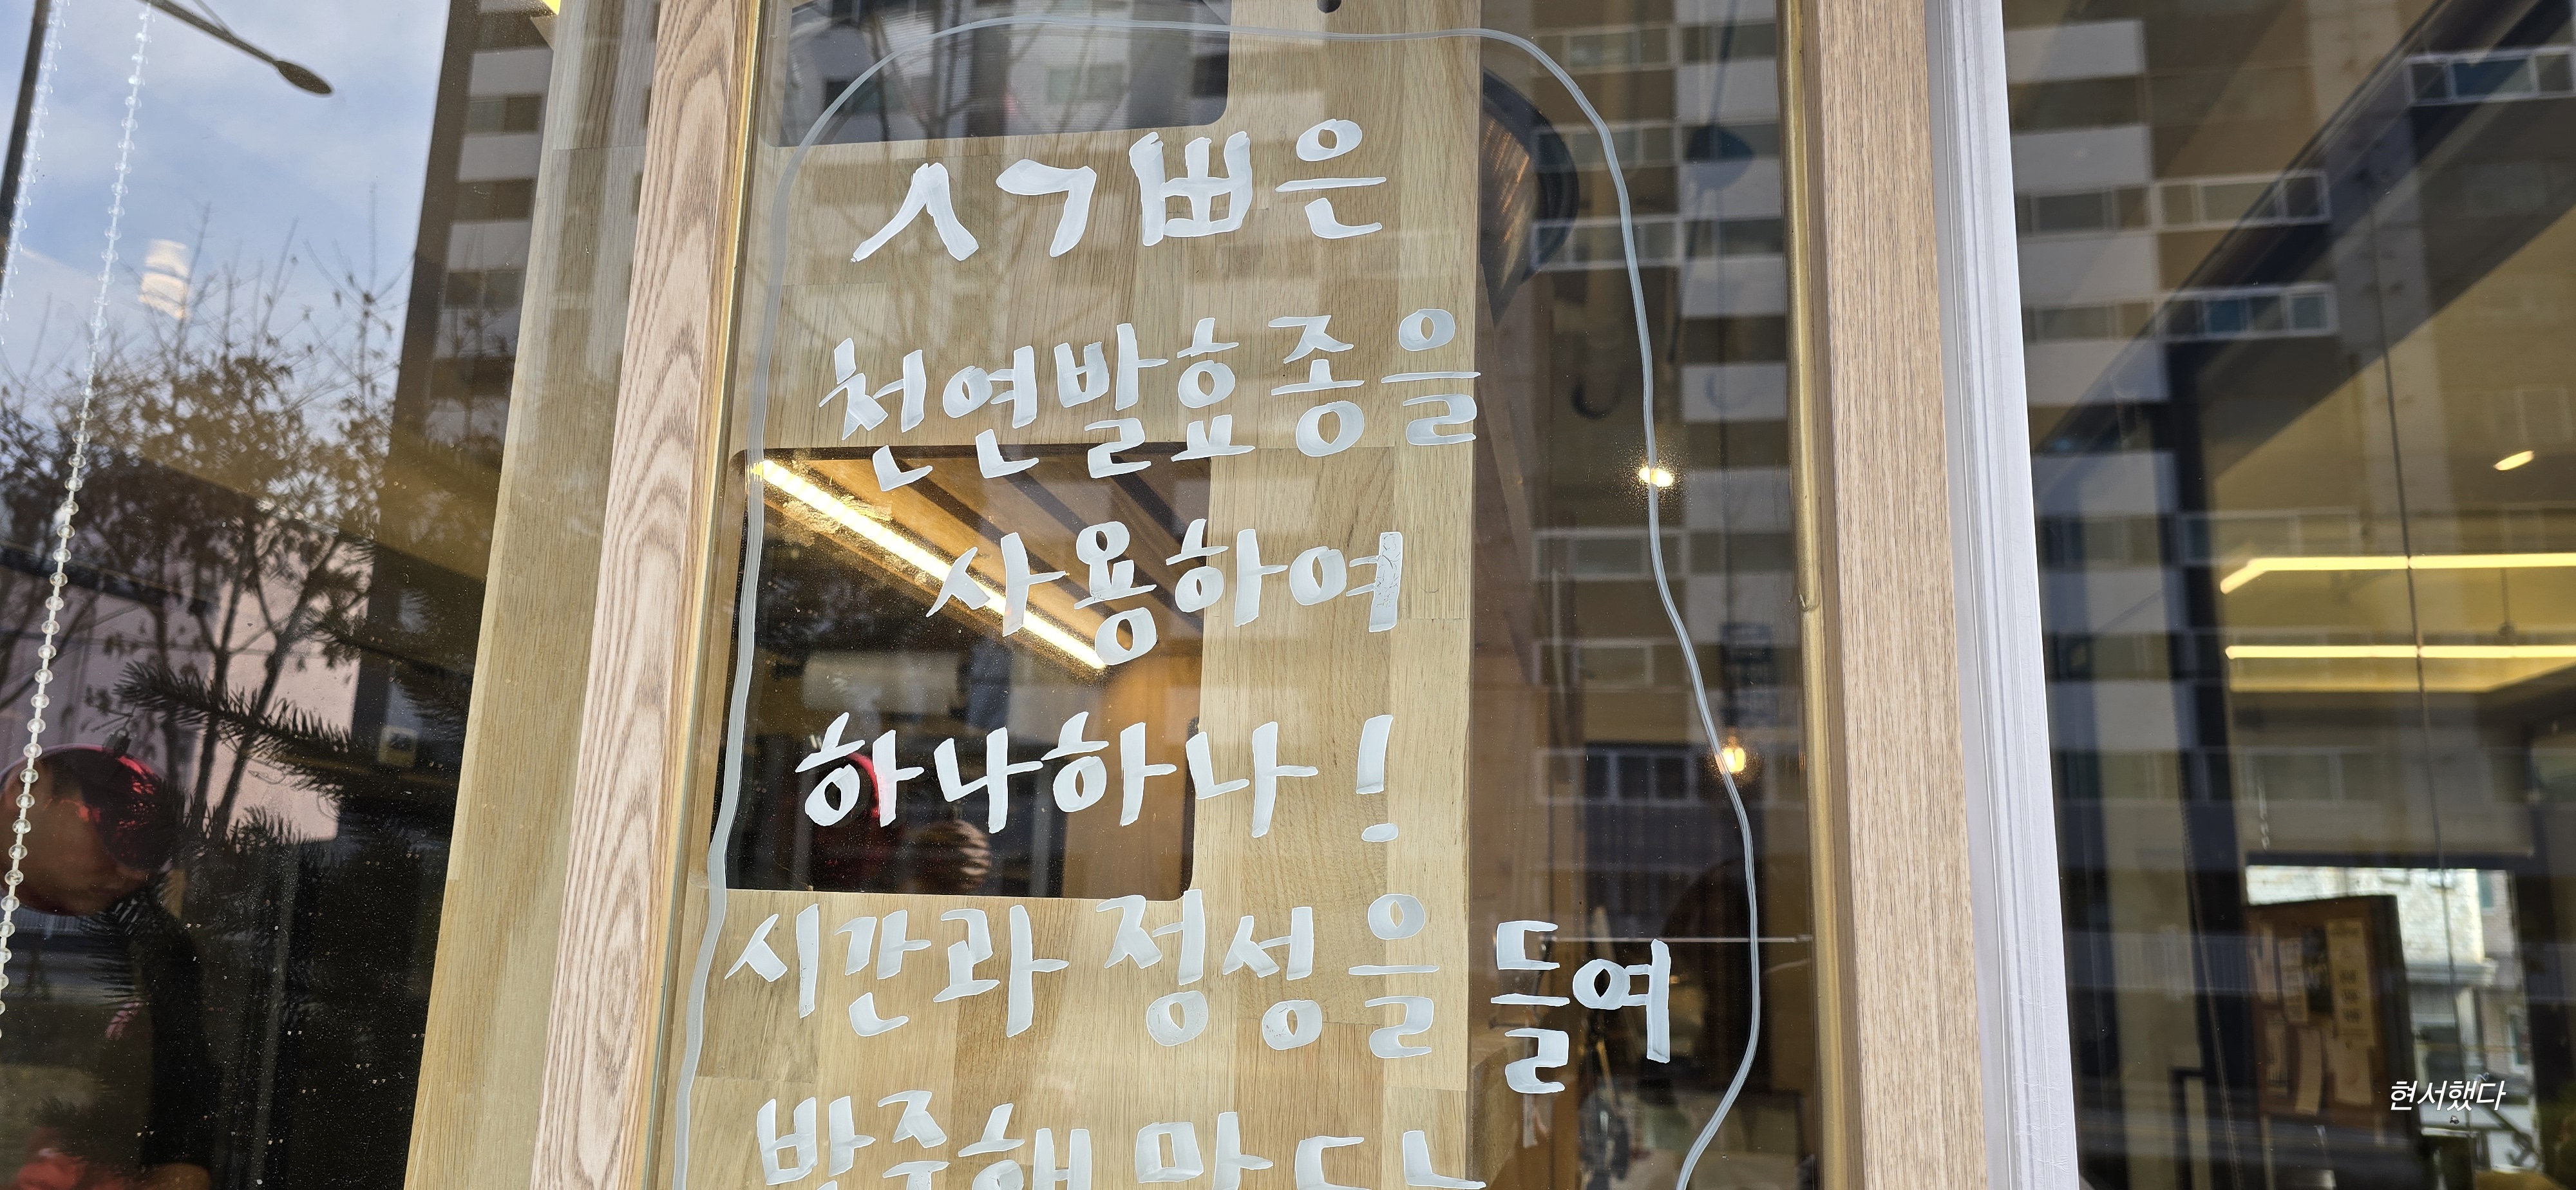 ㅅㄱ쁘은
천연발효종을
사용하여
하나하나!
시간과 정성을 들여
현서했다